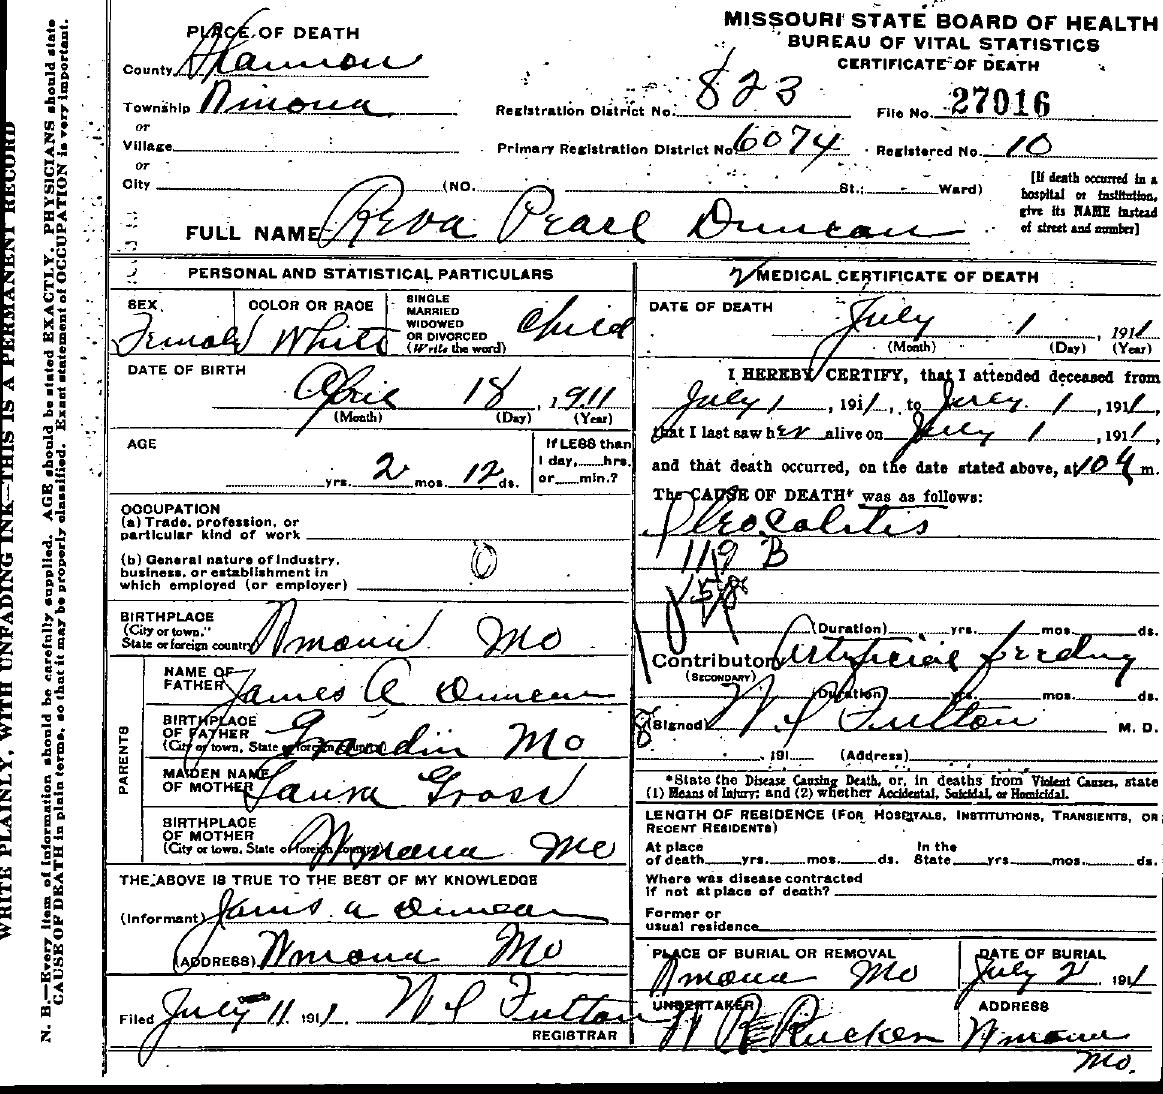 MISSOURI STATE BOARD OF HEALTH
BUREAU OF VITAL STATISTICS
CERTIFICATE OF DEATH
PLACE OF DEATH
County Shannon
Township Winona
or
Village
or
City (NO. St.; Ward)
Registration District No. 823 File No. 27016
Primary Registration District No 6074 Registered No. 10
[If death occurred in a
hospital or institution,
give its NAME instead
of street and number]
FULL NAME Reva Pearl Duncan
PERSONAL AND STATISTICAL PARTICULARS
SEX Female
COLOR OR RACE White
SINGLE
MARRIED
WIDOWED
OR DIVORCED
(Write the word) Child
DATE OF BIRTH
April 18, 1911
(Month) (Day) (Year)
AGE
yrs. 2 mos. 12 ds.
If LESS than
1 day, hrs.
or min.?
OCCUPATION
(a) Trade, profession, or
particular kind of work
(b) General nature of industry,
business, or establishment in
which employed (or employer) 0
BIRTHPLACE
(City or town,
State or foreign country) Winona Mo
PARENTS
NAME OF
FATHER James A Duncan
BIRTHPLACE
OF FATHER
(City or town, State or foreign country) Grandin Mo
MAIDEN NAME
OF MOTHER Laura Gross
BIRTHPLACE
OF MOTHER
(City or town, State or foreign country) Winona Mo
THE ABOVE IS TRUE TO THE BEST OF MY KNOWLEDGE
(Informant) James A Duncan
(ADDRESS) Winona Mo
Filed July 11 1911 Fulton
REGISTRAR
2 MEDICAL CERTIFICATE OF DEATH
DATE OF DEATH
July 1, 1911
(Month) (Day) (Year)
I HEREBY CERTIFY, that I attended deceased from
July 1, 1911, to July 1, 1911,
that I last saw her alive on July 1, 1911,
and that death occurred, on the date stated above, at 10 m.
The CAUSE OF DEATH* was as follows:
Ileocolitis
119 B
158
(Duration) yrs. mos. ds.
Contributory Artificial feeding
(SECONDARY)
(Duration) yrs. mos. ds.
(Signed) Fulton M. D.
, 191 (Address)
*State the Disease Causing Death, or, in deaths from Violent Causes, state
(1) Means of Injury; and (2) whether Accidental, Suicidal, or Homicidal.
LENGTH OF RESIDENCE (FOR HOSPITALS, INSTITUTIONS, TRANSIENTS, OR
RECENT RESIDENTS)
At place In the
of death yrs. mos. ds. State yrs. mos. ds.
Where was disease contracted
if not at place of death?
Former or
usual residence
PLACE OF BURIAL OR REMOVAL
Winona Mo
DATE OF BURIAL
July 2 1911
UNDERTAKER
Rucker
ADDRESS
Winona
Mo.
WRITE PLAINLY, WITH UNFADING INK—THIS IS A PERMANENT RECORD
N. B.—Every item of information should be carefully supplied. AGE should be stated EXACTLY. PHYSICIANS should state
CAUSE OF DEATH in plain terms, so that it may be properly classified. Exact statement of OCCUPATION is very important.